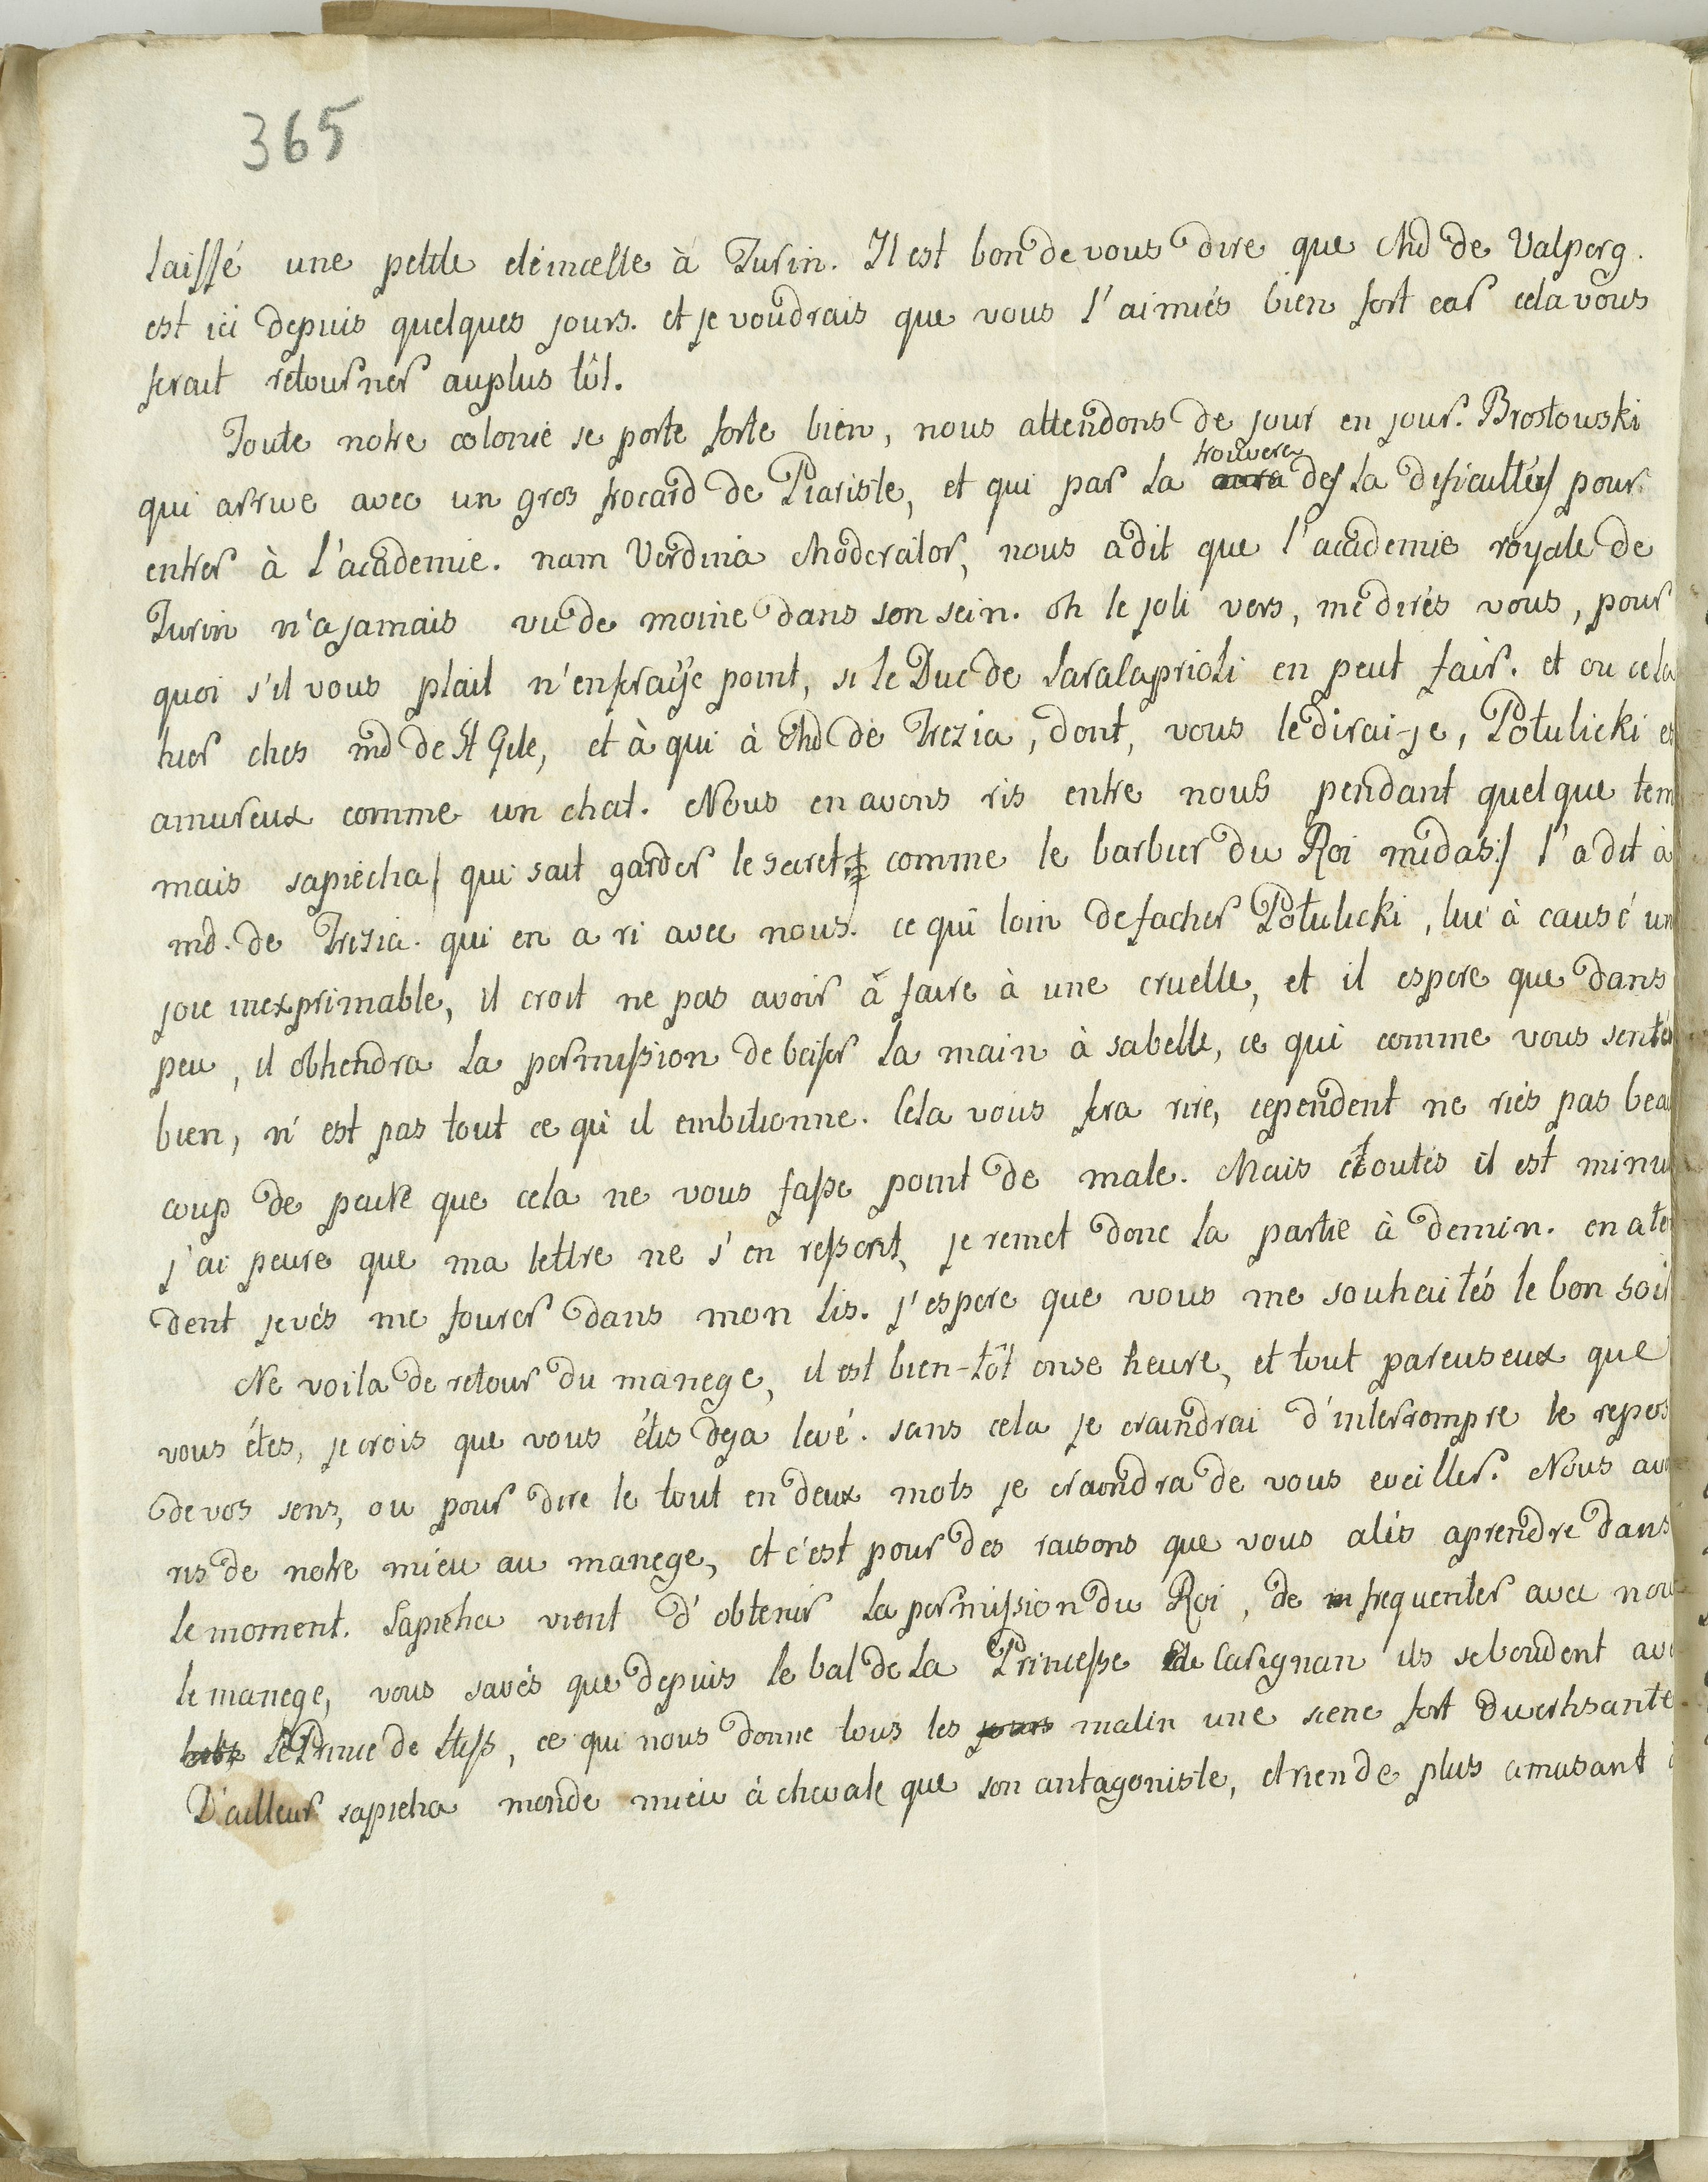 365
laissé une petite eteincelle à Turin. Il est bon de vous dire que Md de Valperg.
est ici depuis quelques jours. et je voudrais que vous l'aimiés bien fort car cela vous
ferait retourner auplus tôt.
Toute notre colonie se porte forte bien, nous attendons de jour en jour. Brostowski
qui arrive avec un gros frocard de Piariste, et qui par la
trouvera
aura des la dificultées pour
entrer à l'academie. nam Verdina Moderator, nous a dit que l'academie royale de
Turin n'a jamais vu de moine dans son sein. oh le joli vers, me dirés vous, pour
quoi s'il vous plait n'enferaÿje point, si le Duc de Saralaprioli en peut fair. et ou cela
hier ches md de St Gile, et à qui à Md de Trezia, dont, vous le dirai-je, Potulicki es
amureux comme un chat. Nous en avons ris entre nous pendant quelque tem
mais sapiecha/ qui sait garder le secret comme le barbier du Roi midas:/ l'a dit à
md. de Trezia. qui en a ri avec nous. ce qui loin de facher Potulicki, lui à causé un
joie inexprimable, il croit ne pas avoir à faire à une cruelle, et il espere que dans
peu, il obtiendra la permission de baiser la main à sabelle, ce qui comme vous sentés
bien, n'est pas tout ce qu'il embitionne. Cela vous fera rire, cependent ne riés pas beau
coup de peure que cela ne vous fasse point de male. Mais ecoutés il est minu
j'ai peure que ma lettre ne s'en ressent, je remet donc la partie à demin. en aten
dent je vés me fourer dans mon lis. j'espere que vous me souhaités le bon soir
Me voila de retour du manege, il est bien-tôt onse heure, et tout pareuseux que
vous étes, je crois que vous étes deja levé. sans cela je craindrai d'interrompre le repos
de vos sens, ou pour dire le tout en deux mots je craindra de vous eveiller. Nous avo
ris de notre mieu au manege, et c'est pour des raisons que vous alés aprendre dans
le moment. Sapieha vient d'obtenir la permission du Roi, de frequenter avec nou
le manege, vous savés que depuis le bal de la Princesse de Carignan ils se boudent av
le Prince de Hess, ce qui nous donne tous les jours matin une scene fort divertisante
D'ailleur sapieha monde mieu à chevale que son antagoniste, et rien de plus amusant